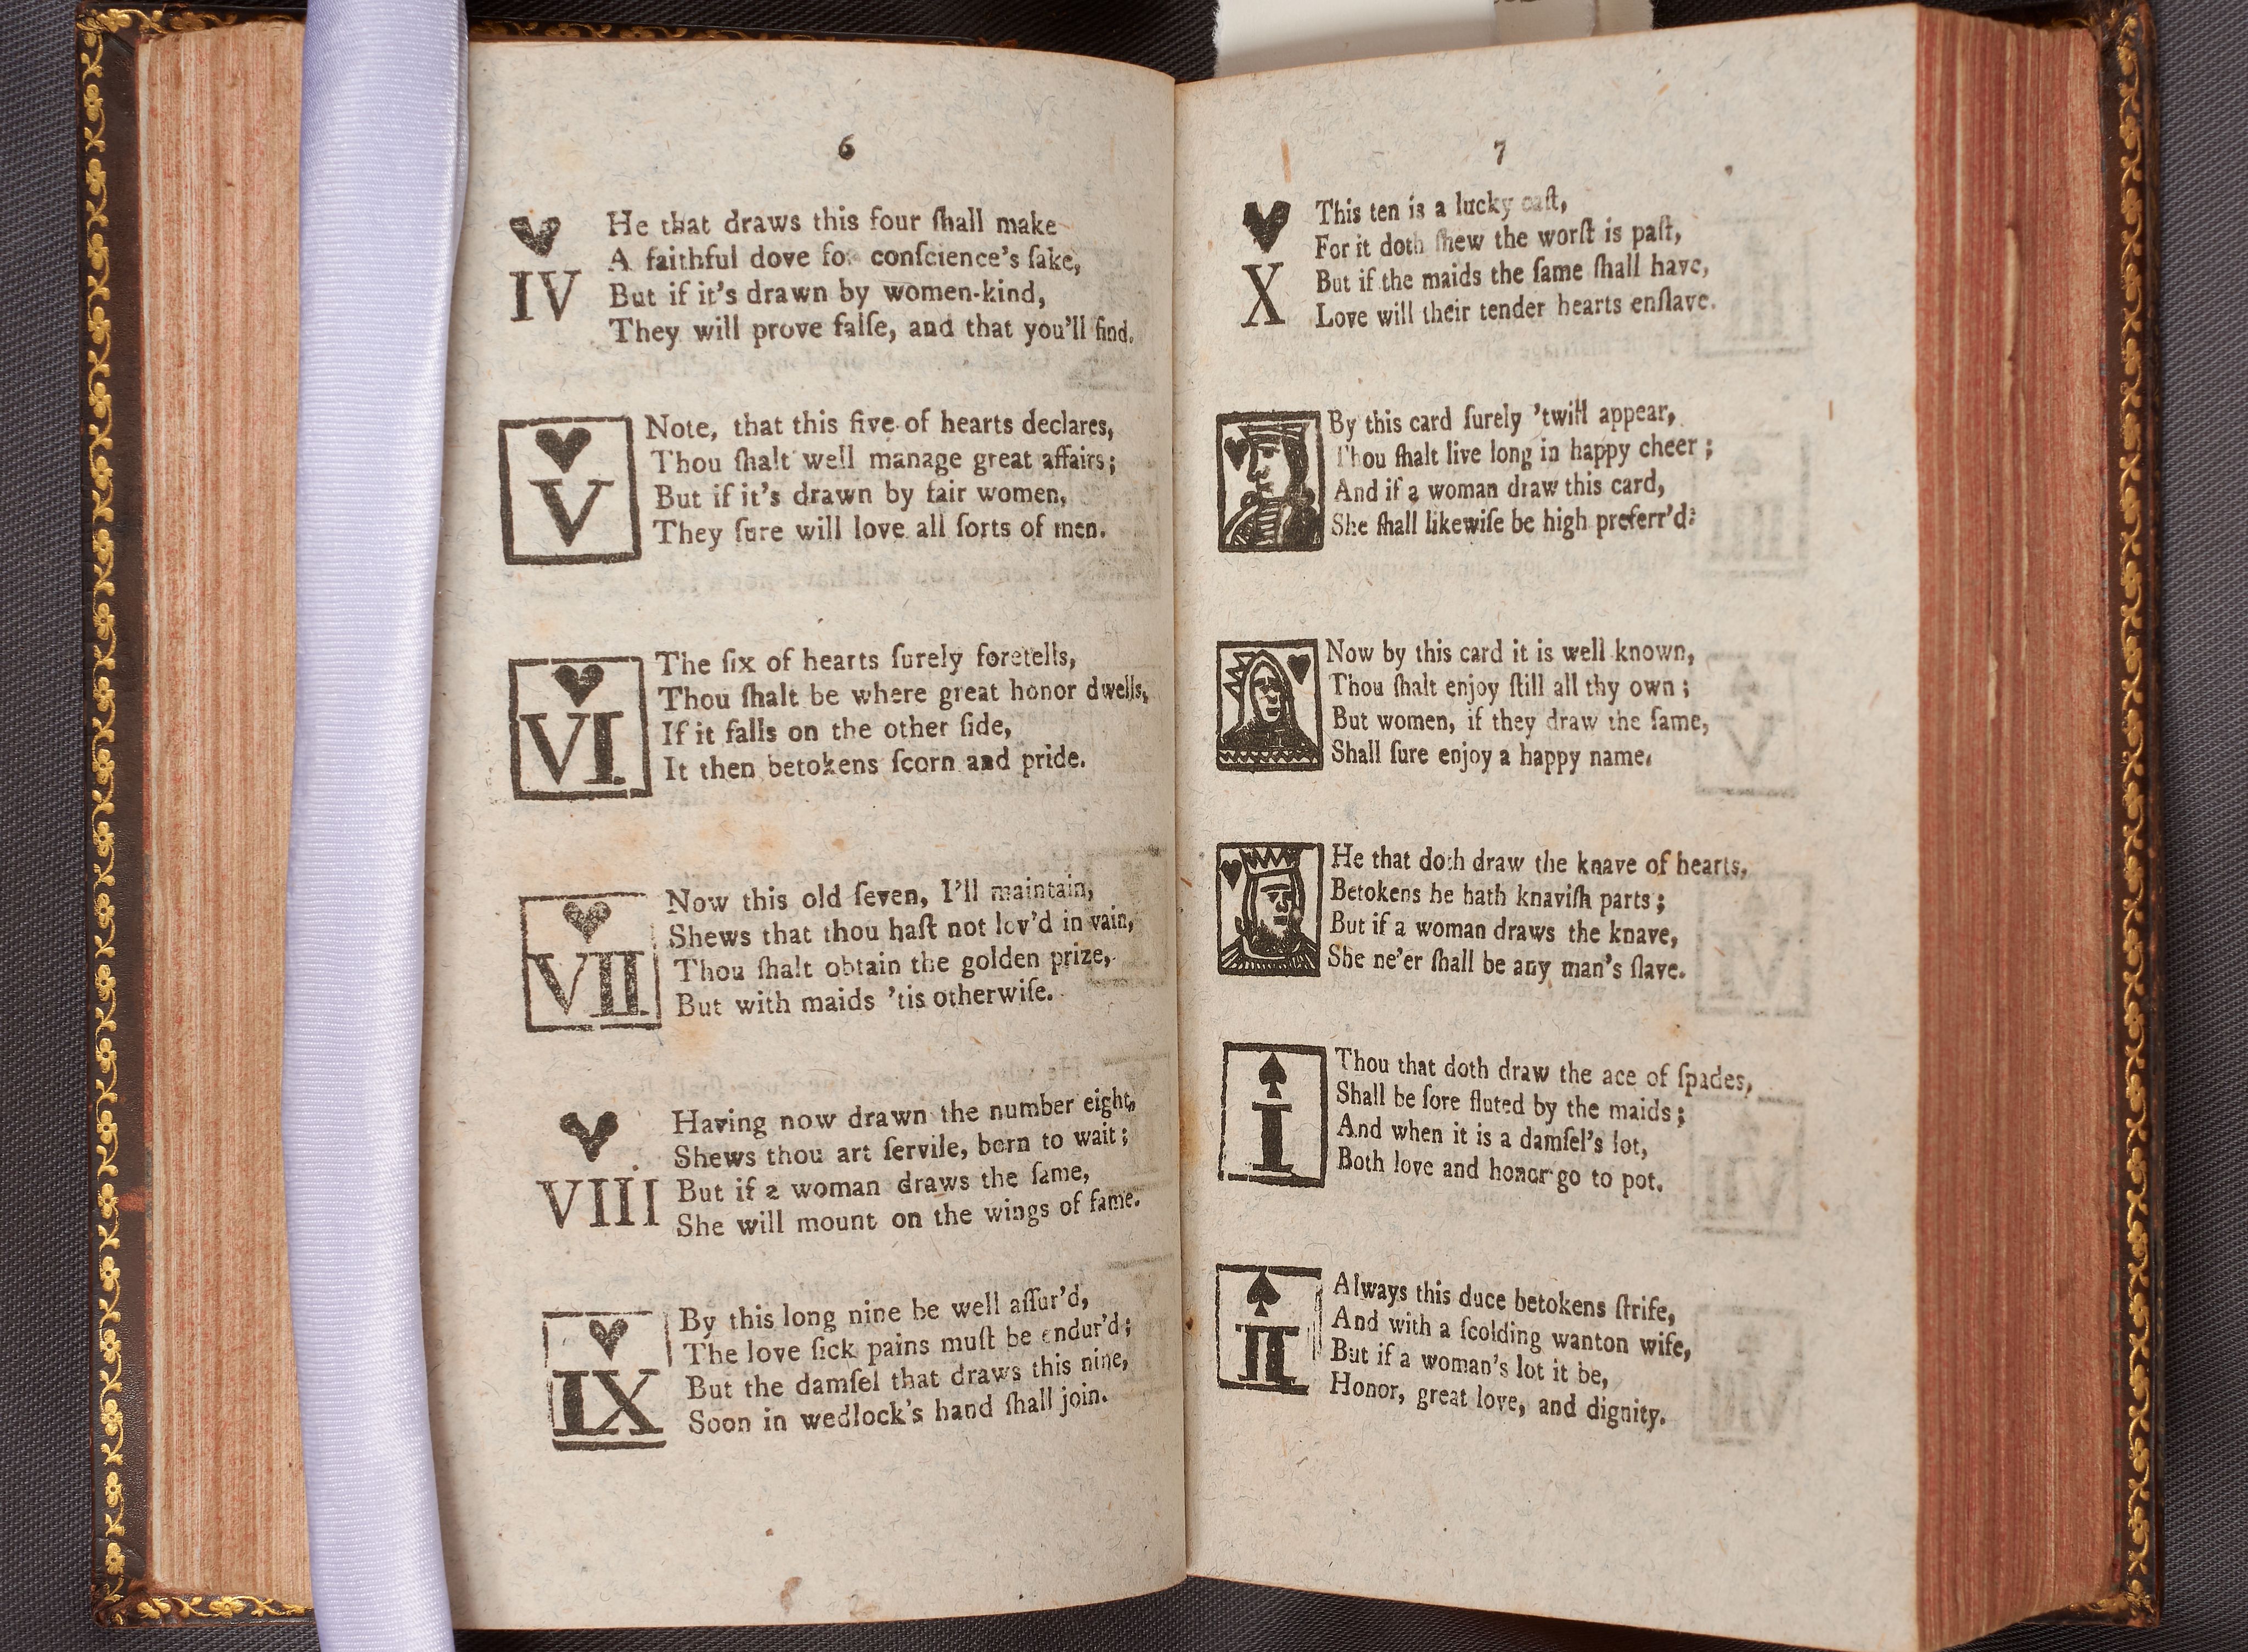 6
♥
IV
He that draws this four ſhall make
A faithful dove for conſcience's ſake,
But if it's drawn by women-kind,
They will prove falſe, and that you'll find.
♥
V
Note, that this five of hearts declares,
Thou ſhalt well manage great affairs;
But if it's drawn by fair women,
They ſure will love all ſorts of men.
♥
VI
The ſix of hearts ſurely foretells,
Thou ſhalt be where great honor dwells,
If it falls on the other ſide,
It then betokens ſcorn and pride.
♥
VII
Now this old ſeven, I'll maintain,
Shews that thou haſt not lov'd in vain,
Thou ſhalt obtain the golden prize,
But with maids 'tis otherwiſe.
♥
VIII
Having now drawn the number eight,
Shews thou art ſervile, born to wait;
But if a woman draws the ſame,
She will mount on the wings of fame.
♥
IX
By this long nine be well aſſur'd,
The love ſick pains muſt be endur'd;
But the damſel that draws this nine,
Soon in wedlock's hand ſhall join.
7
♥
X
This ten is a lucky caſt,
For it doth ſhew the worſt is paſt,
But if the maids the ſame ſhall have,
Love will their tender hearts enſlave.
By this card ſurely 'twill appear,
Thou ſhalt live long in happy cheer;
And if a woman draw this card,
She ſhall likewiſe be high preferr'd:
Now by this card it is well known,
Thou ſhalt enjoy ſtill all thy own;
But women, if they draw the ſame,
Shall ſure enjoy a happy name.
He that doth draw the knave of hearts,
Betokens he hath knaviſh parts;
But if a woman draws the knave,
She ne'er ſhall be any man's ſlave.
♠
I
Thou that doth draw the ace of ſpades,
Shall be ſore fluted by the maids;
And when it is a damſel's lot,
Both love and honor go to pot.
♠
II
Always this duce betokens ſtrife,
And with a ſcolding wanton wife,
But if a woman's lot it be,
Honor, great love, and dignity.